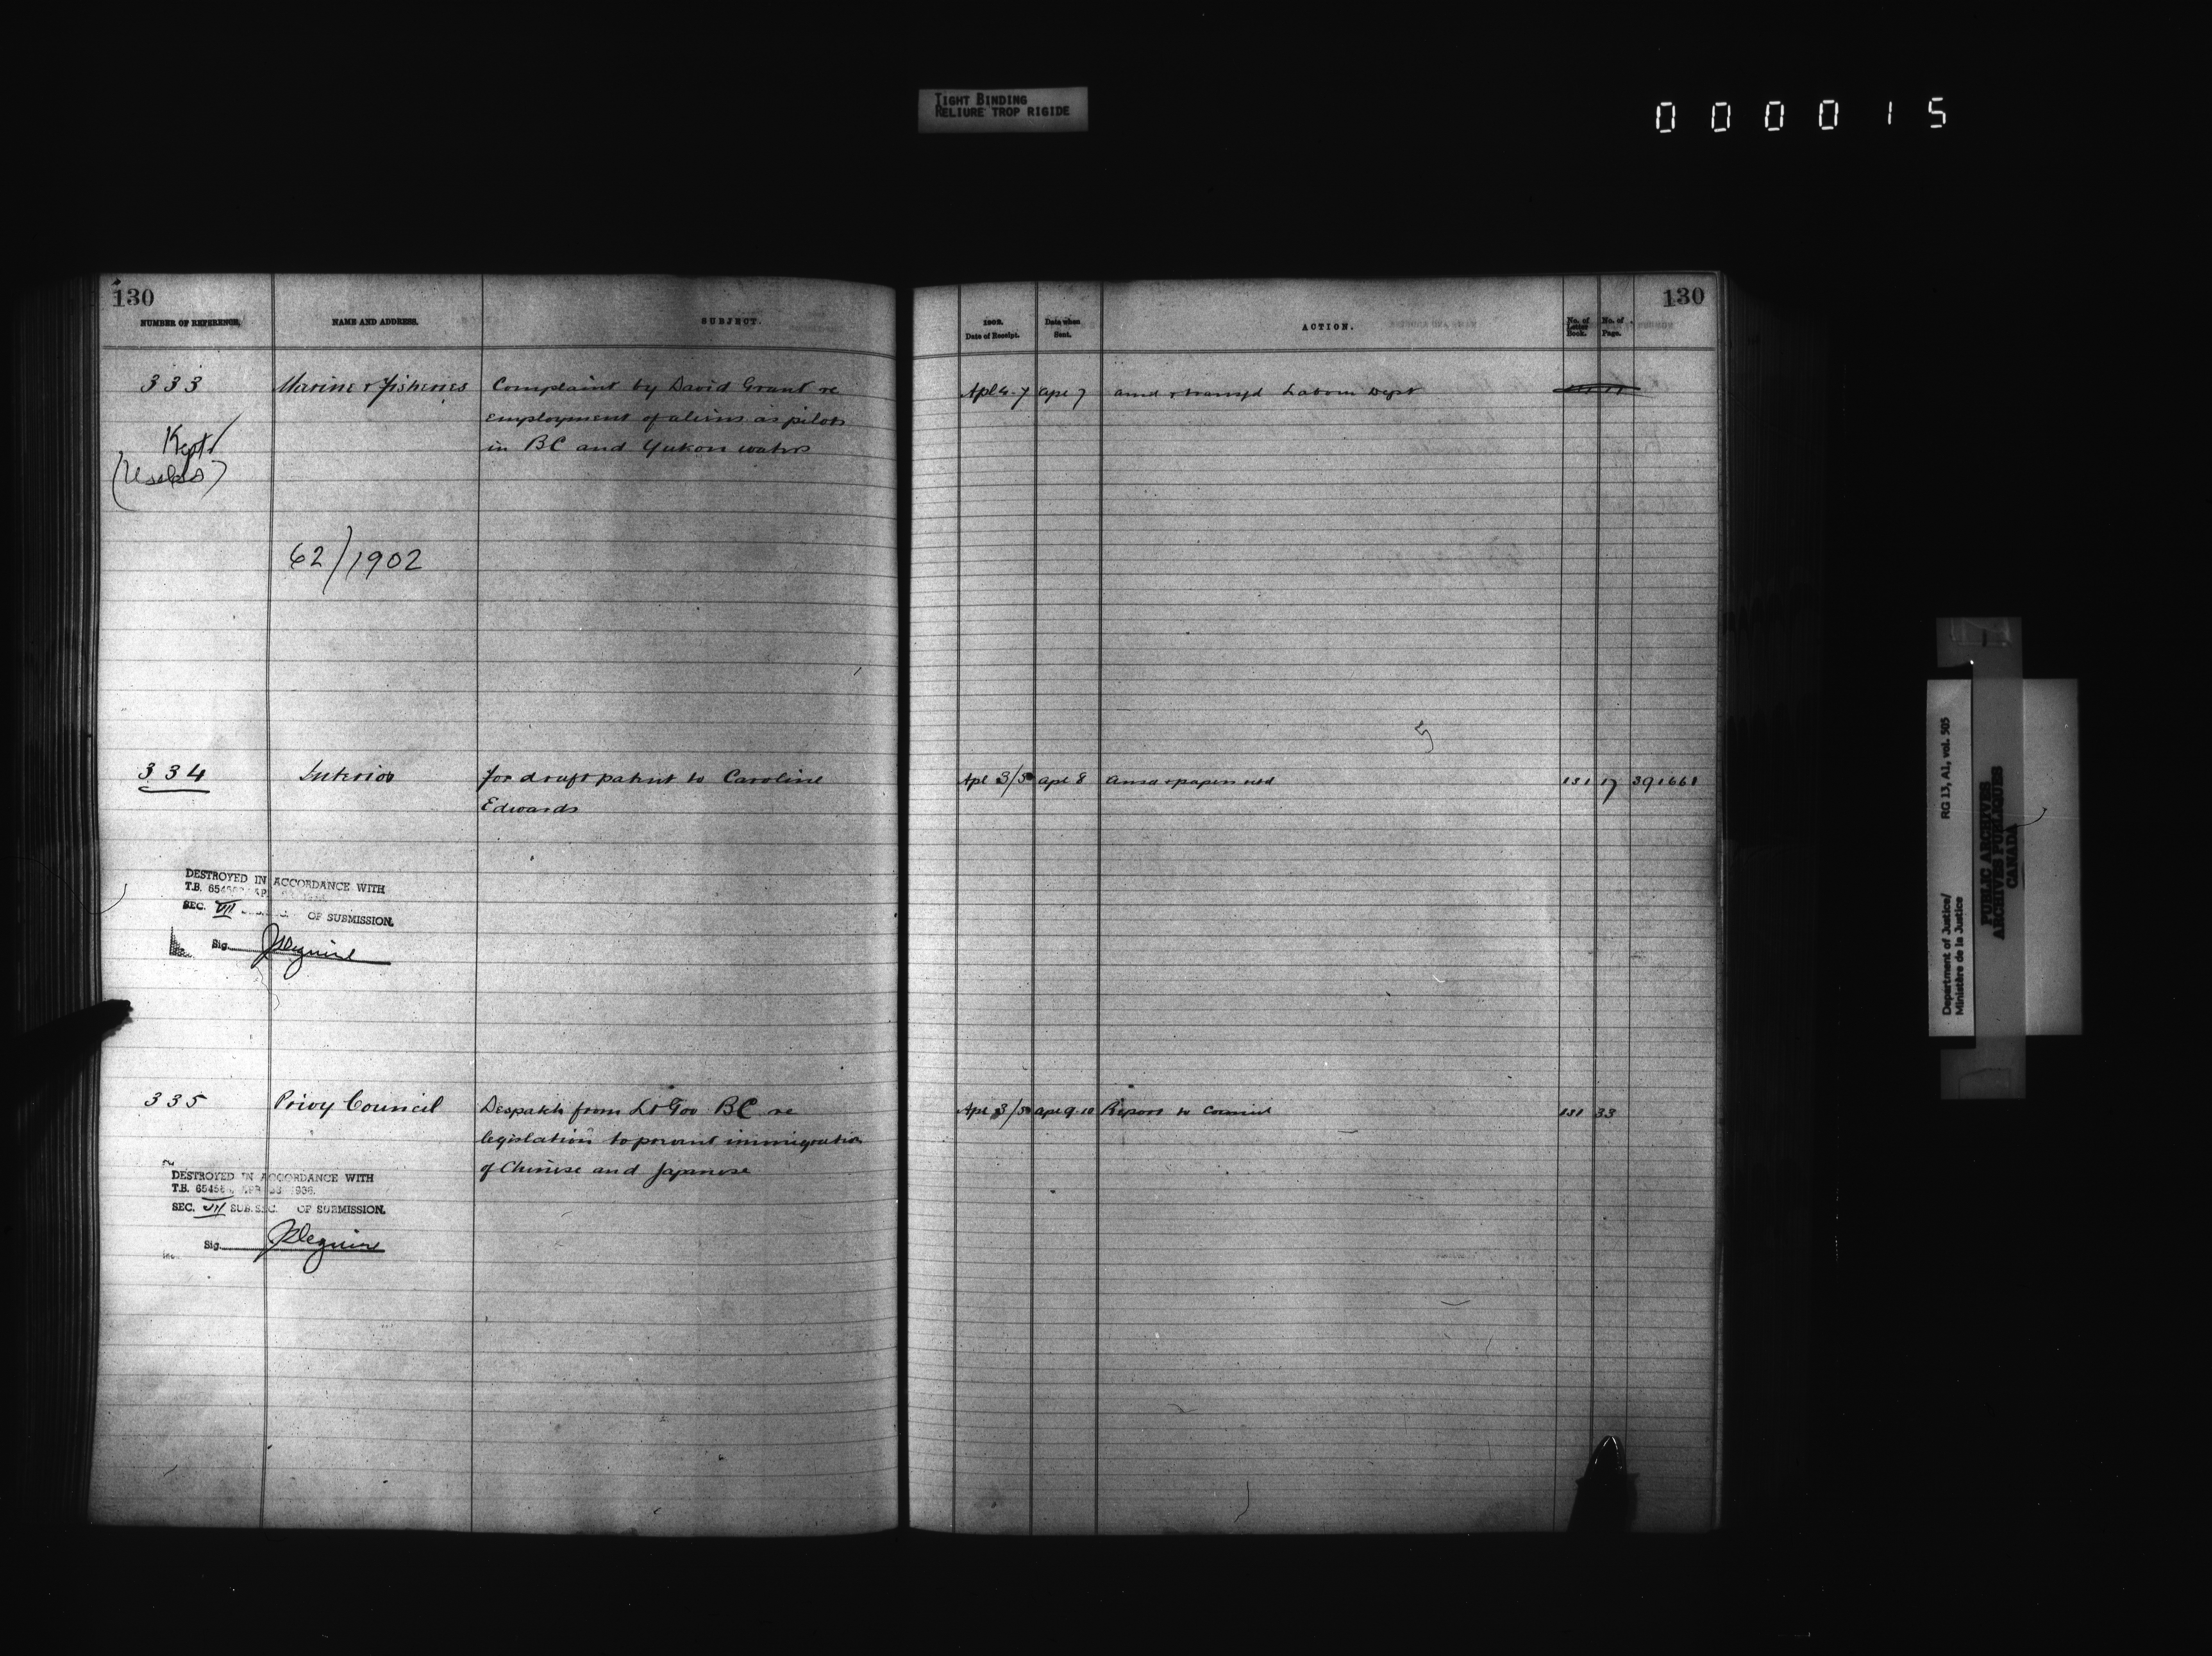 TIGHT BINDING
RELIURE TROP RIGIDE
000015
130
NUMBER OF REFERENCE.
NAME AND ADDRESS.
SUBJECT.
333
Marine & Fisheries
Complaint by David Grant re
employment of aliens as pilots
in BC and Yukon waters
Kept
(Useless)
62/1902
334
Interior
for draft patent to Caroline
Edwards
DESTROYED IN ACCORDANCE WITH
T.B.
SEC. VII OF SUBMISSION.
Sig.
335
Privy Council
Despatch from Lt Gov BC re
legislation to prevent immigration
of Chinese and Japanese
DESTROYED IN ACCORDANCE WITH
T.B.
SEC. VII SUB. SEC. OF SUBMISSION.
Sig.
130
1902.
Date of Receipt.
Date when
Sent.
ACTION.
No. of
Letter
Book.
No. of
Page.
Apl 4-7
apl 7
and transfd Labour Dept
Apl 3/5
apl 8
Ansd & papers retd
131
17
391661
Apl 3/5
apl 9-10
Report to Council
131
33
Department of Justice/
Ministère de la Justice
RG 13, A1, vol. 505
PUBLIC ARCHIVES
ARCHIVES PUBLIQUES
CANADA